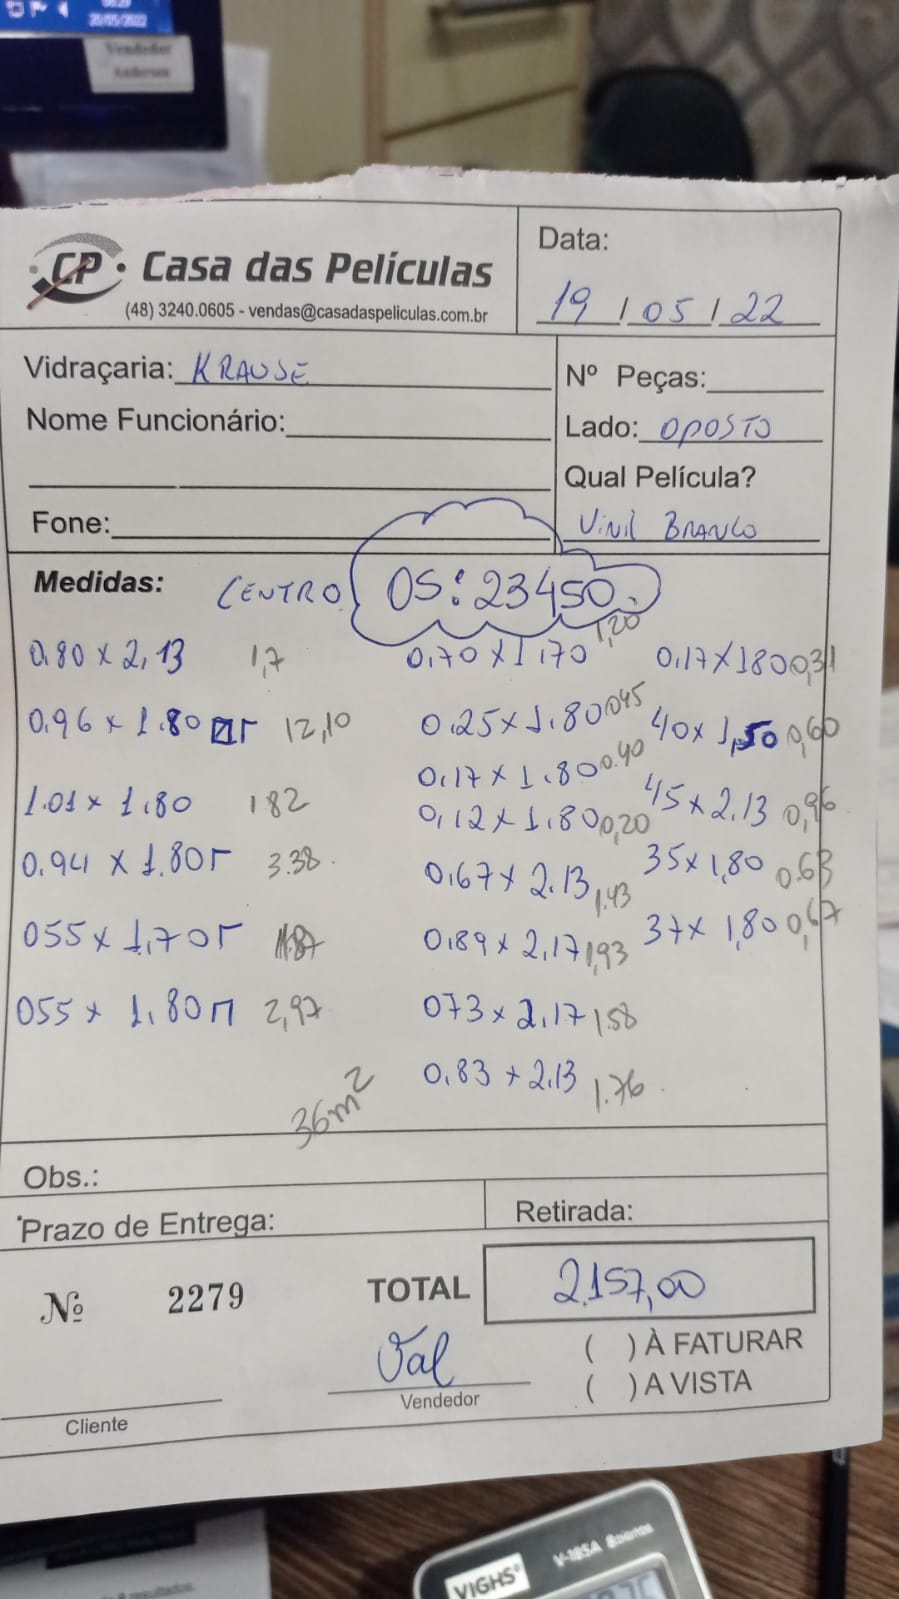 20/05/2022
Vendedor
Anderson
CP Casa das Películas
(48) 3240.0605 - vendas@casadaspeliculas.com.br
Data:
19 / 05 / 22
Vidraçaria: KRAUSE
Nº Peças:
Nome Funcionário:
Lado: OPOSTO
Qual Película?
Fone:
VINIL BRANCO
Medidas: CENTRO OS: 23450.
0.80 x 2,13 1,7
0.70 x 1.70 1,20
0.17 x 180 0,31
0.96 x 1.80 12,10
0.25 x 1.80 0.45
40 x 1,50 0,60
0.17 x 1.80 0.40
1.01 x 1.80 1 82
0,12 x 1.80 0,20
45 x 2.13 0,96
0.94 x 1.80 3.38
0.67 x 2.13 1.43
35 x 1,80 0.63
055 x 1,70 1.87
0.89 x 2,17 1,93
37 x 1,80 0,67
055 x 1.80 2,97
073 x 2,17 1.58
0.83 x 2.13 1.76
36m²
Obs.:
Prazo de Entrega:
Retirada:
Nº 2279
TOTAL 2.157,00
( ) À FATURAR
Val
( ) A VISTA
Vendedor
Cliente
VIGHS® V-185A